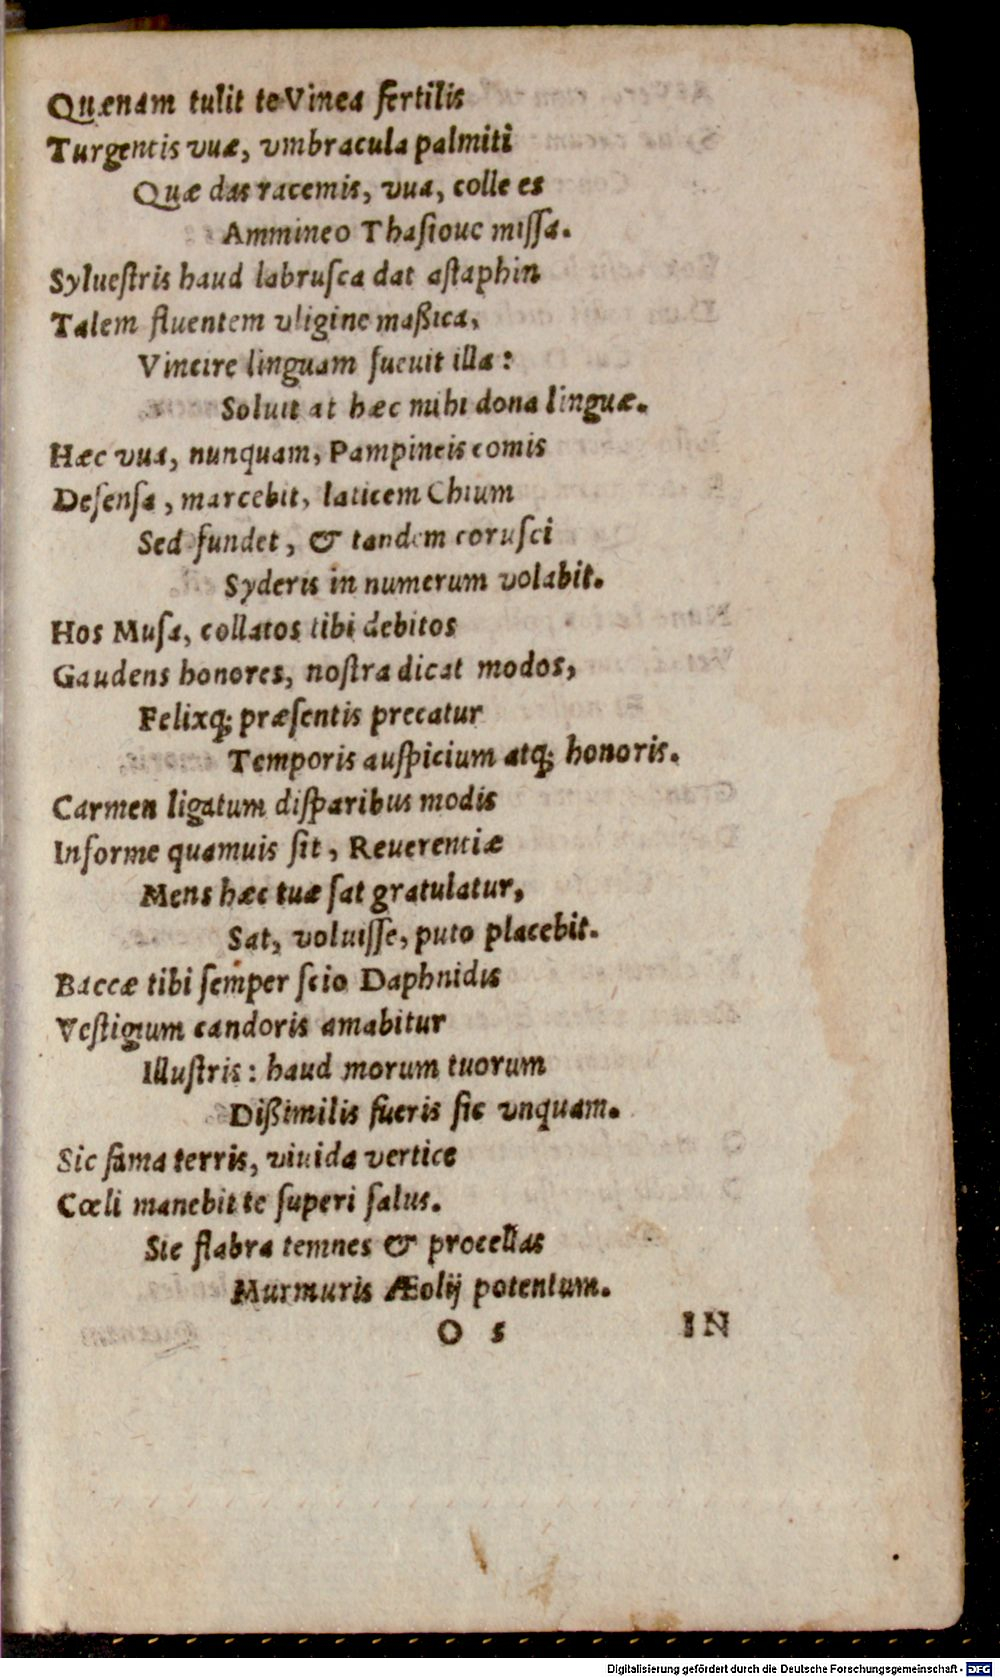 Quænam tulit te Vinea fertilis
Turgentis vuæ, vmbracula palmiti
Quæ das racemis, vua, colle es
Ammineo Thasioue missa.
Sylvestris haud labrusca dat astaphin
Talem fluentem vligine maßica,
Vincire linguam sueuit illa:
Soluit at hæc mihi dona linguæ.
Hæc vua, nunquam, Pampineis comis
Defensa, marcebit, laticem Chium
Sed fundet, & tandem corusci
Syderis in numerum volabit.
Hos Musa, collatos tibi debitos
Gaudens honores, nostra dicat modos,
Felixq; præsentis precatur
Temporis auspicium atq; honoris.
Carmen ligatum disparibus modis
Informe quamuis sit, Reuerentiæ
Mens hæc tuæ sat gratulatur,
Sat, voluisse, puto placebit.
Baccæ tibi semper scio Daphnidis
Vestigium candoris amabitur
Illustris: haud morum tuorum
Dißimilis fueris sic vnquam.
Sic fama terris, viuida vertice
Cœli manebit te superi salus.
Sic flabra temnes & procellas
Murmuris Æolij potentum.
O 5 IN
Digitalisierung gefördert durch die Deutsche Forschungsgemeinschaft - DFG